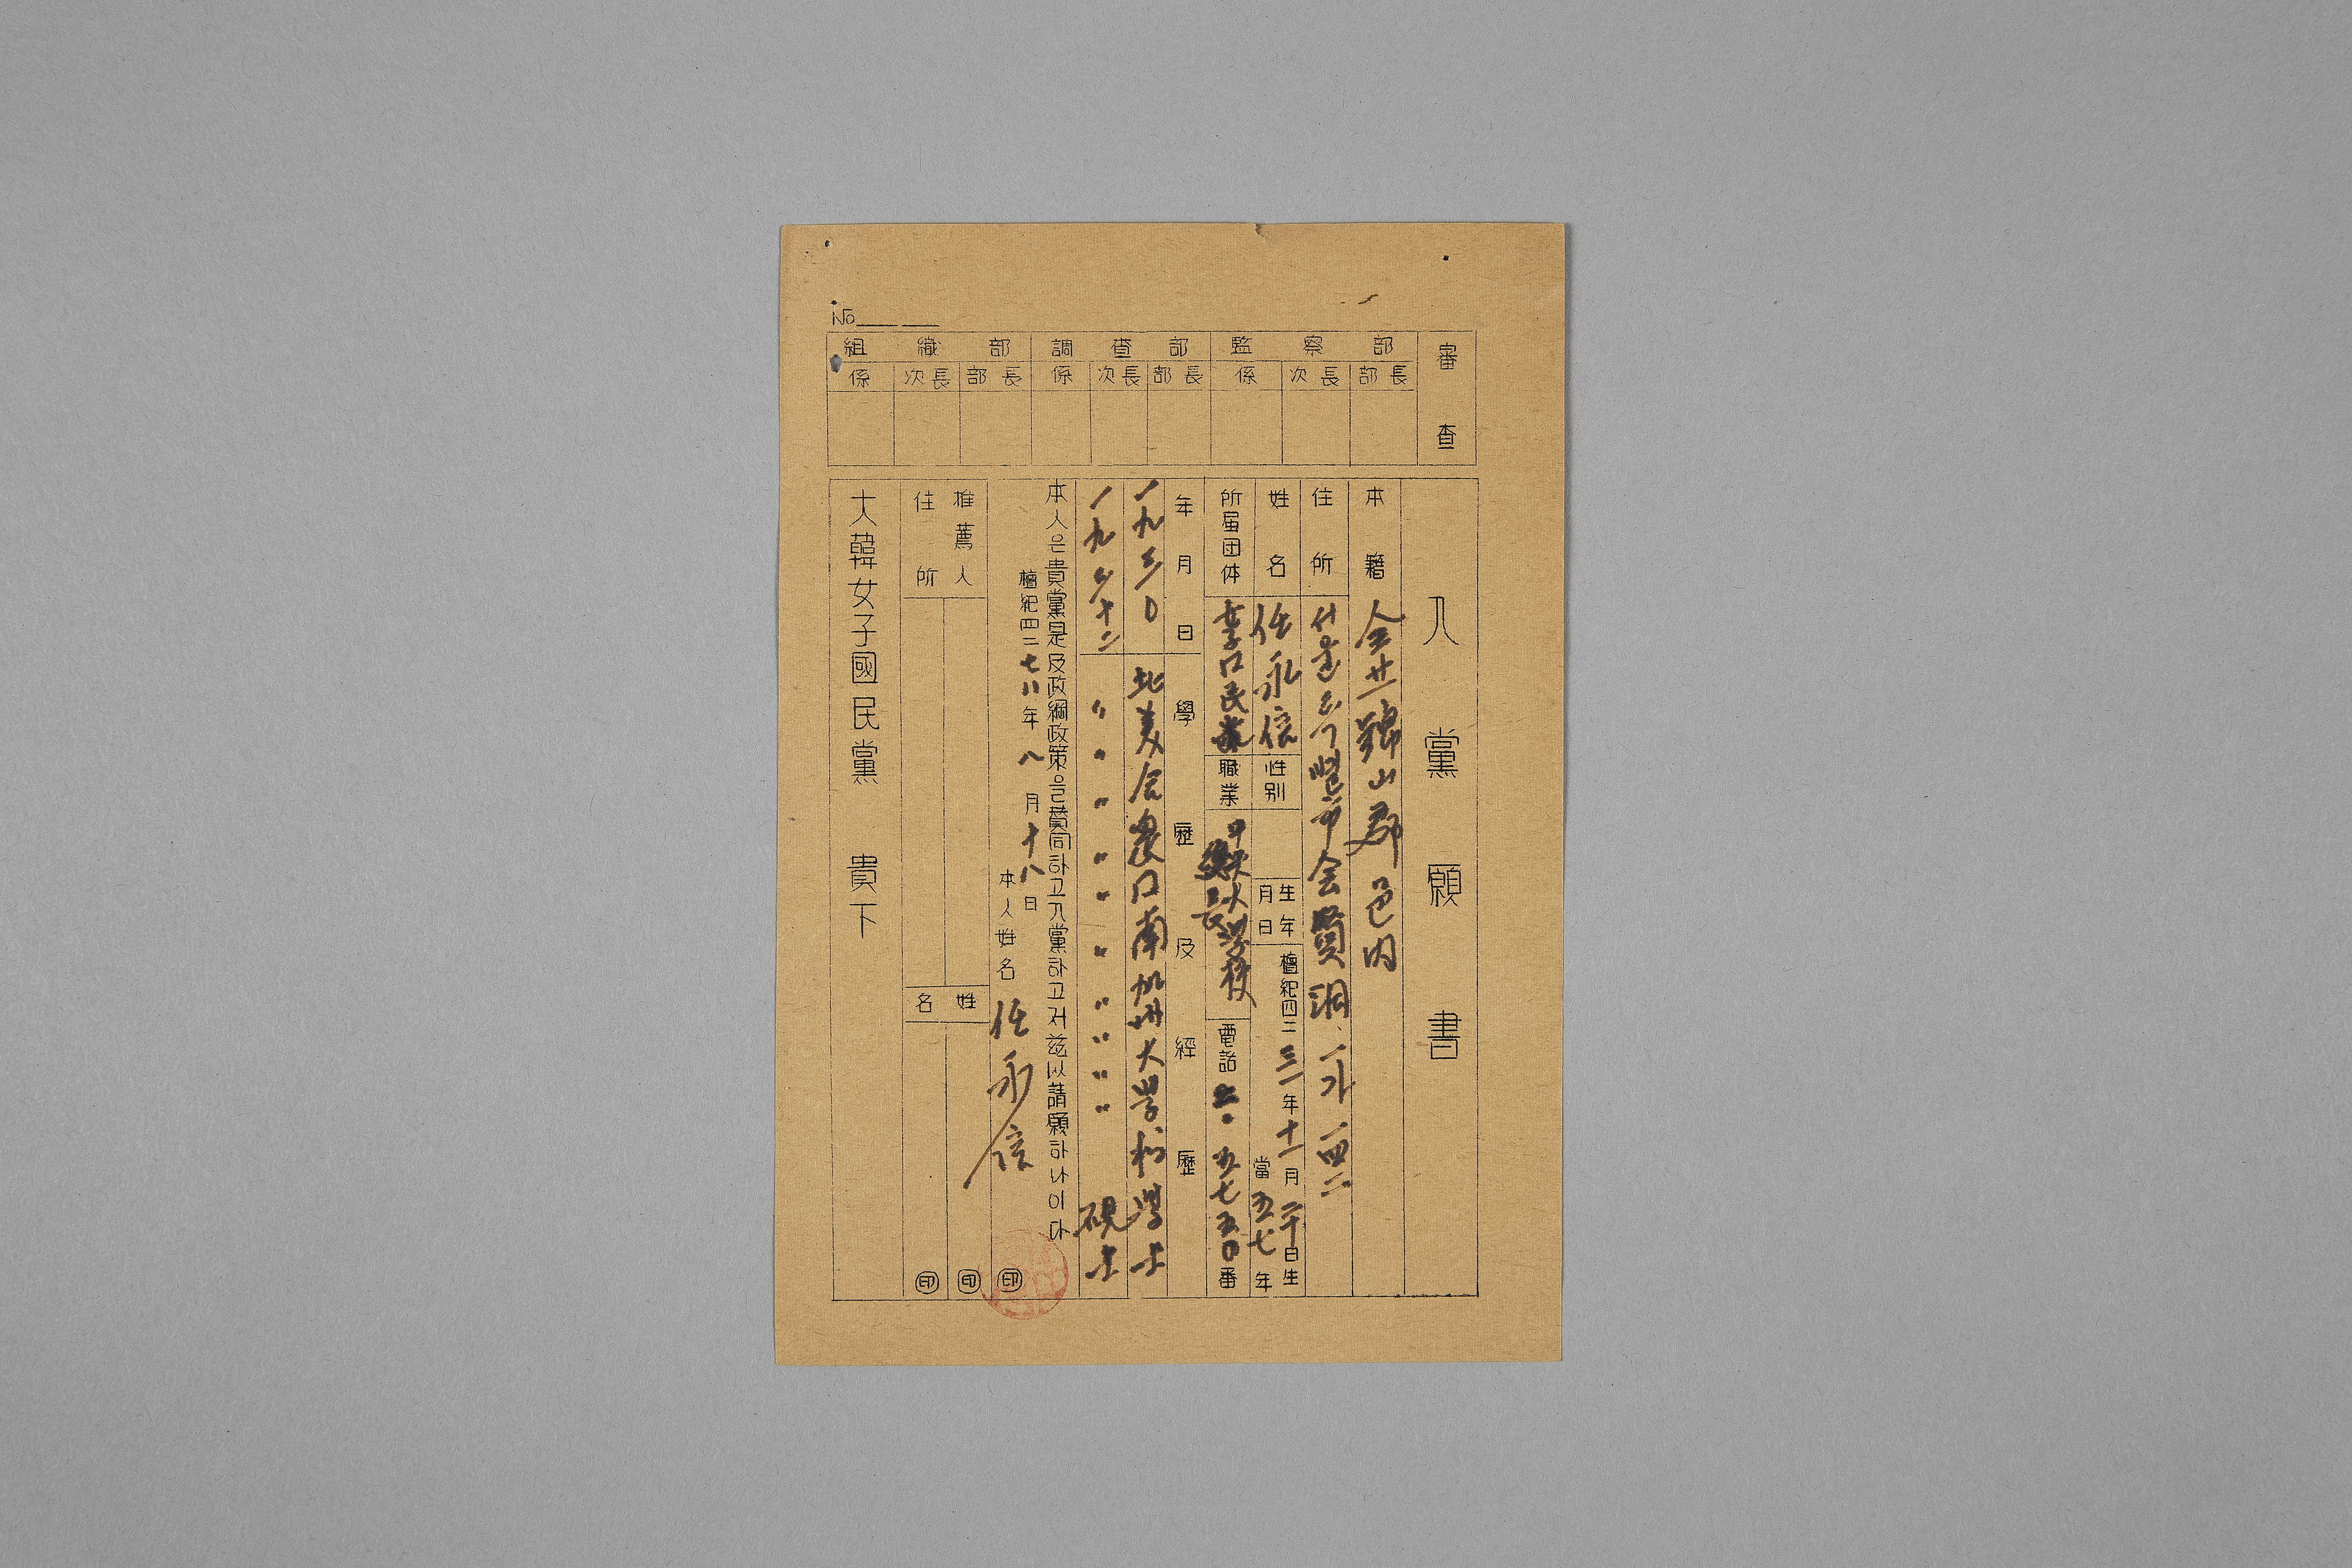 No
審査
監察部
部長
次長
係
調査部
部長
次長
係
組織部
部長
次長
係
入黨願書
本籍
全北錦山郡邑内
住所
서울特別市会賢洞一가 一四二
姓名
任永信
性别
生年月日
檀紀四二三二年十一月二十日生
當五七年
所屬団体
女子國民黨
職業
中央大学校
総長
電話
五七五〇番
年月日
學歷及經歷
一九三〇
北美合衆口南加州大学 学士
一九三十二
〃〃〃〃〃〃〃〃〃 碩士
本人은貴黨是及政綱政策을贊同하고入黨하고저玆以請願하나이다
檀紀四二七八年八月十八日
本人姓名 任永信 印
推薦人
住所
姓名
印
印
大韓女子國民黨 貴下